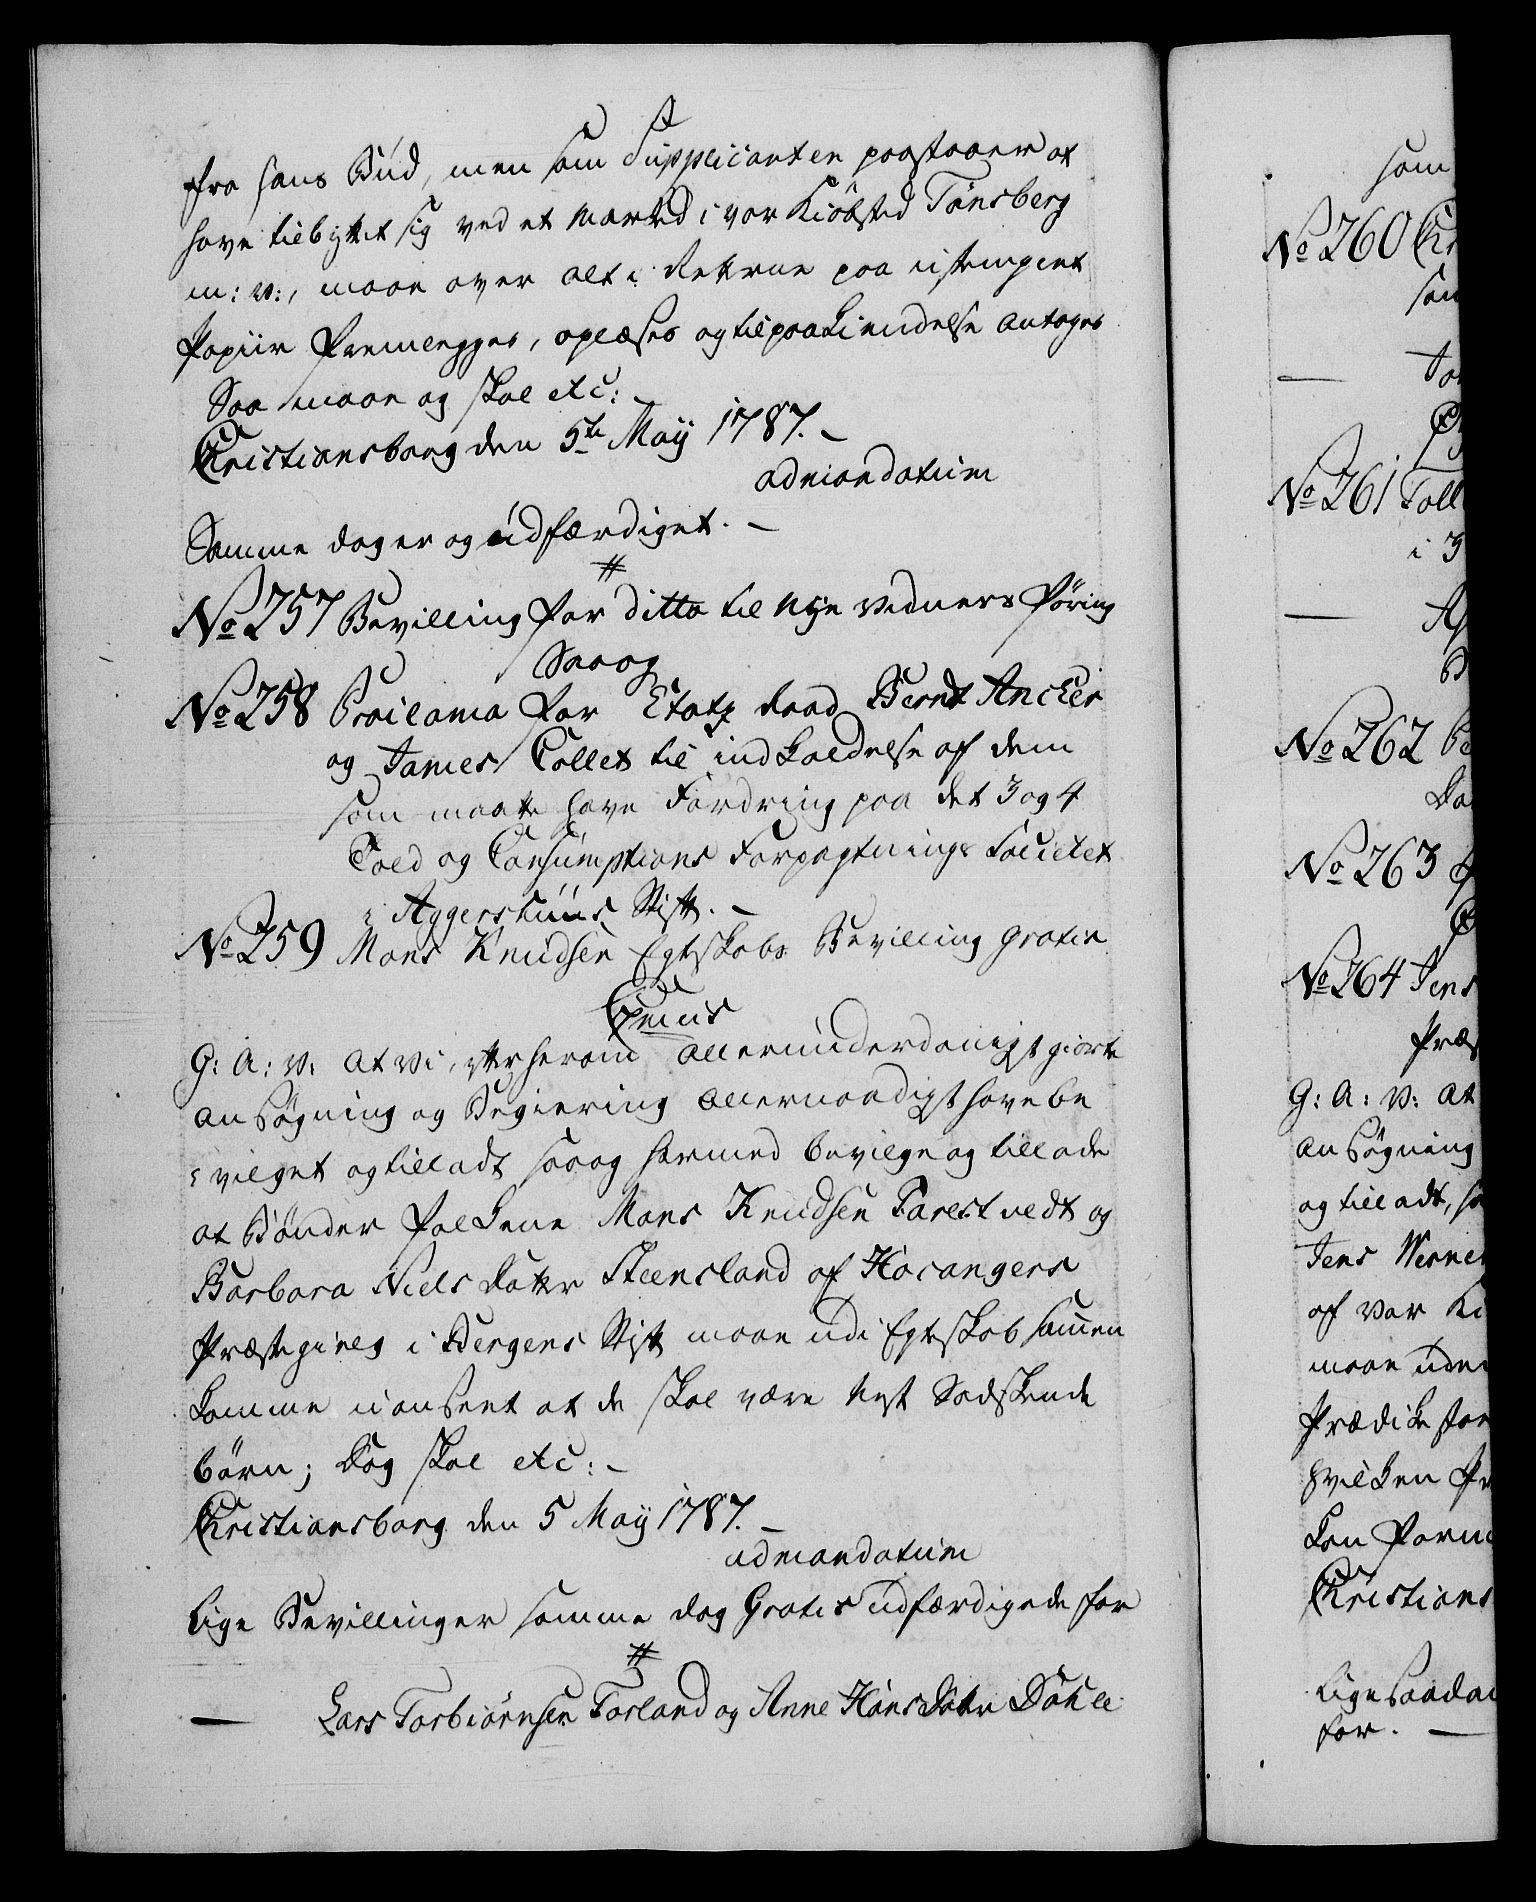 fra hans Bud, men som Supplicanten paastaaer at
have tilbyttet sig ved et Marked i vor Kiöbsted Tønsberg
m: v:, maae over alt i Retterne paa ustemplet
Papiir fremlegges, oplæses og til paakiendelse antages
Saa maae og skal etc:
Christiansborg den 5te Maij 1787. –
ad mandatum
Samme dag er og udfærdiget. –
No 257 Bevilling for ditto til Nye Vidners føring
Saa og
No 258 Proclama for Etatz Raad Bernt Ancker
og James Collet til indkaldelse af dem
som maatte have Fordring paa det 3 og 4
Told og Consumptions Forpagtnings Societet
i Aggershuus Stift. –
No 259 Mons Knudsen Egtskabs Bevilling gratis
G: A: V: At Vi, efter herom allerunderdanigst giorte
Ansøgning og Begiering allernaadigst have be
vilget og tilladt, saa og hermed bevilge og tillade
at Bønder folkene Mons Knudsen Farestvedt og
Barbara Niels datter Steensland af Hosangers
Præstegield i Bergens Stift maae udi Egteskab sammen
komme uanseet at de skal være Nest Sødskende
børn; Dog skal etc: –
Christiansborg den 5 Maij 1787. –
ad mandatum
Lige Bevillinger samme dag Gratis udfærdigede for
— Lars Torbiørnsen Forland og Anne Hansdatter
som
No 260
No 261 Toll
i 3
No 262
No 263
No 264 Jens
G: A: V: At
Ansøgning
og tilladt,
Jens
af vor
maae
hvilken
Christians
Lige
for. —